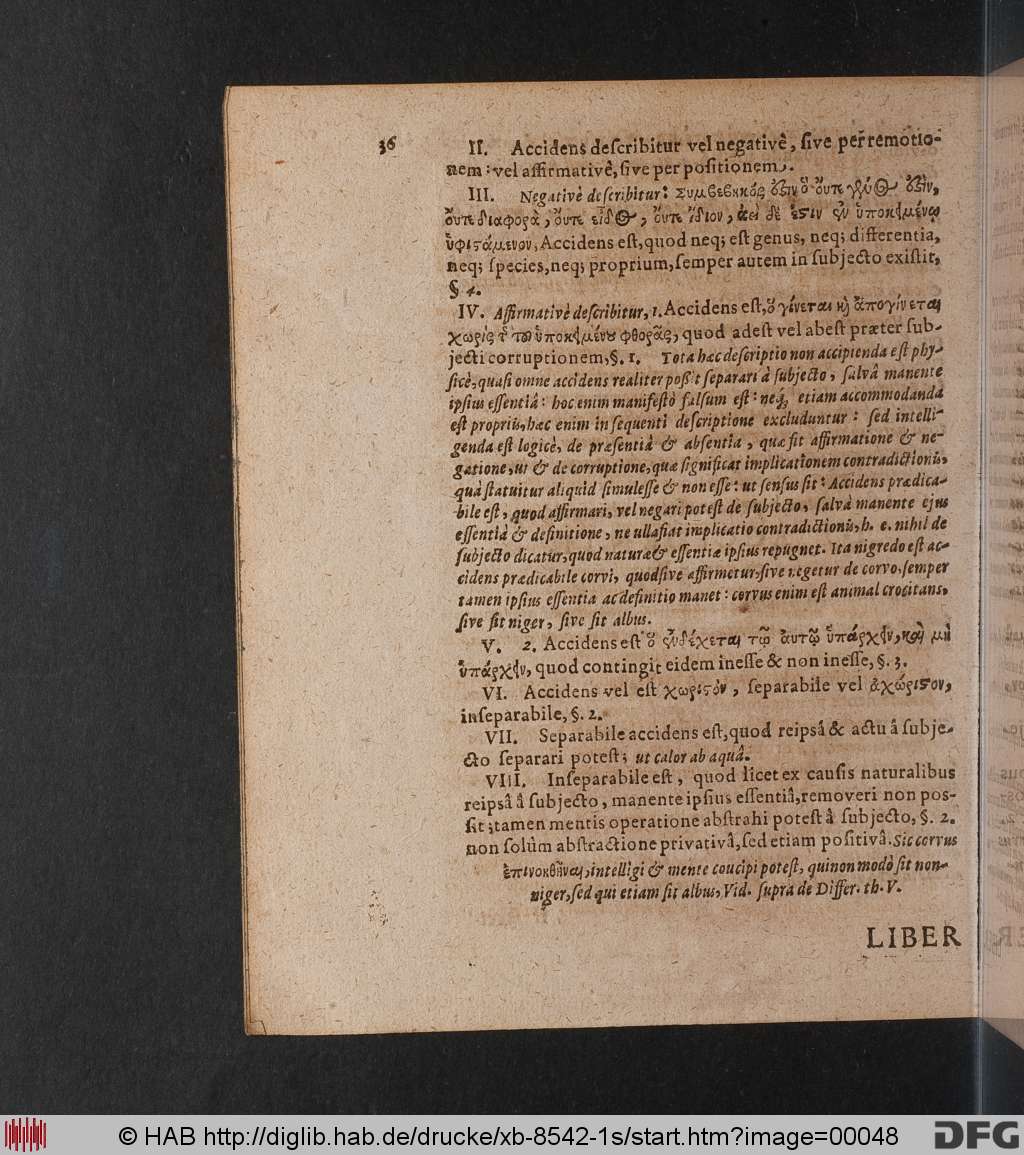 36
II. Accidens deſcribitur vel negativè, ſive per remotio-
nem: vel affirmativè, ſive per poſitionem.
III. Negativè deſcribitur: Συμβεβηκός ὅξιν ὃ οὔτε γένος ὅξιν,
οὔτε διαφορὰ, οὔτε εἶδος, οὔτε ἴδιον, ἀεὶ δὲ ἐστιν ἐν ὑποκειμένῳ
ὑφιστάμενον, Accidens eſt, quod neq; eſt genus, neq; differentia,
neq; ſpecies, neq; proprium, ſemper autem in ſubjecto exiſtit,
§ 4.
IV. Affirmativè deſcribitur, 1. Accidens eſt, ὃ γίνεται καὶ ἀπογίνεται
χωρὶς τῆς τοῦ ὑποκειμένου φθορᾶς, quod adeſt vel abeſt præter ſub-
jecti corruptionem, §. 1. Tota hæc deſcriptio non accipienda eſt phy-
ſicè, quaſi omne accidens realiter poßit ſeparari à ſubjecto, ſalvâ manente
ipſius eſſentiâ: hoc enim manifeſtò falſum eſt: neq; etiam accommodanda
eſt propriis, hæc enim in ſequenti deſcriptione excluduntur: ſed intelli-
genda eſt logicè, de præſentiâ & abſentia, quæ fit affirmatione & ne-
gatione, ut & de corruptione, quæ ſignificat implicationem contradictionis,
quâ ſtatuitur aliquid ſimul eſſe & non eſſe: ut ſenſus ſit: Accidens prædica-
bile eſt, quod affirmari, vel negari poteſt de ſubjecto, ſalvâ manente ejus
eſſentiâ & definitione, ne ulla fiat implicatio contradictionis, h. e. nihil de
ſubjecto dicatur, quod naturæ & eſſentiæ ipſius repugnet. Ita nigredo eſt ac-
cidens prædicabile corvi, quod ſive affirmetur, ſive negetur de corvo, ſemper
tamen ipſius eſſentia ac definitio manet: corvus enim eſt animal crocitans,
ſive ſit niger, ſive ſit albus.
V. 2. Accidens eſt ὃ ἐνδέχεται τῷ αὐτῷ ὑπάρχειν, καὶ μὴ
ὑπάρχειν, quod contingit eidem ineſſe & non ineſſe, §. 3.
VI. Accidens vel eſt χωριστὸν, ſeparabile vel ἀχώριστον,
inſeparabile, §. 2.
VII. Separabile accidens eſt, quod reipsâ & actu à ſubje-
cto ſeparari poteſt; ut calor ab aquâ.
VIII. Inſeparabile eſt, quod licet ex cauſis naturalibus
reipsâ à ſubjecto, manente ipſius eſſentiâ, removeri non poſ-
ſit; tamen mentis operatione abſtrahi poteſt à ſubjecto, §. 2.
non ſolùm abſtractione privativâ, ſed etiam poſitivâ. Sic corvus
ἐπινοηθῆναι, intelligi & mente coucipi poteſt, qui non modò ſit non-
niger, ſed qui etiam ſit albus, Vid. ſupra de Differ. th. V.
LIBER
© HAB http://diglib.hab.de/drucke/xb-8542-1s/start.htm?image=00048
DFG